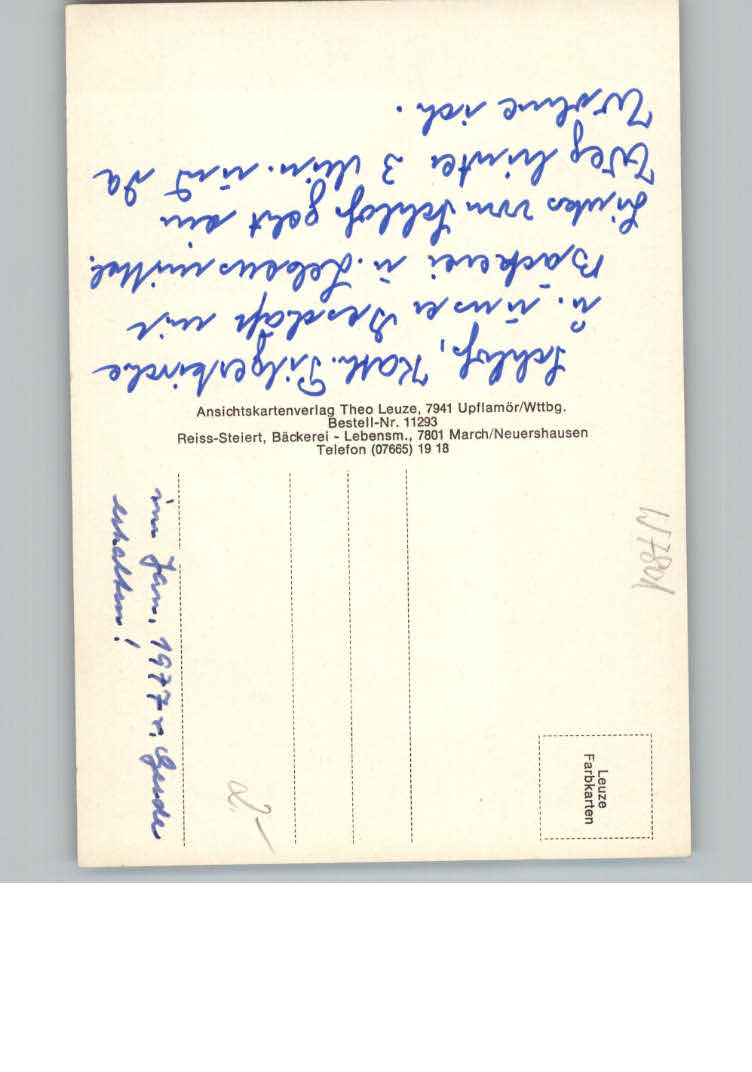 Schloß, Kath. Pilgerkirche
u. unser Geschäft mit
Bäckerei u. Lebensmittel.
Links vom Schloß geht ein
Weg hinter 3 Min. und da
Wohne ich.
Ansichtskartenverlag Theo Leuze, 7941 Upflamör/Wttbg.
Bestell-Nr. 11293
Reiss-Steiert, Bäckerei - Lebensm., 7801 March/Neuershausen
Telefon (07665) 19 18
im Jan. 1977 v.
erhalten!
W7801
2,-
Leuze
Farbkarten